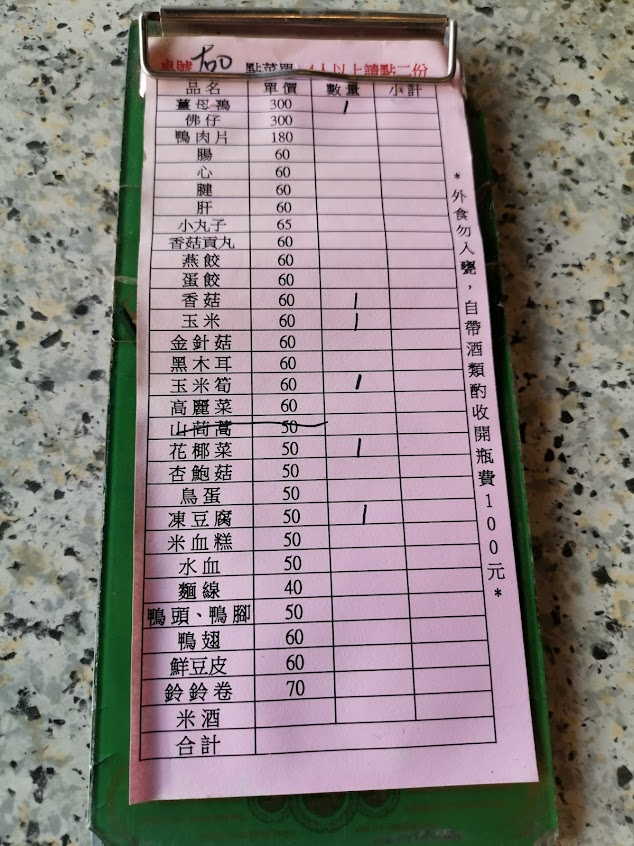 桌號 點菜單 4人以上請點二份
品名 單價 數量 小計
薑母鴨 300 1
佛仔 300
鴨肉片 180
腸 60
心 60
腱 60
肝 60
小丸子 65
香菇貢丸 60
燕餃 60
蛋餃 60
香菇 60 1
玉米 60 1
金針菇 60
黑木耳 60
玉米筍 60 1
高麗菜 60
山茼蒿 50
花椰菜 50 1
杏鮑菇 50
鳥蛋 50
凍豆腐 50 1
米血糕 50
水血 50
麵線 40
鴨頭、鴨腳 50
鴨翅 60
鮮豆皮 60
鈴鈴卷 70
米酒
合計
*外食勿入甕，自帶酒類酌收開瓶費100元*